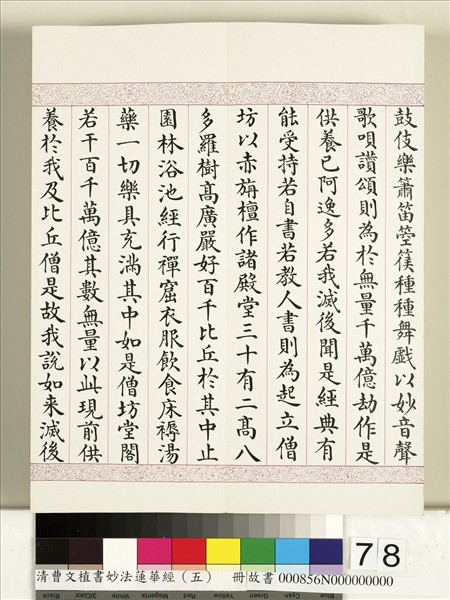 鼓伎樂簫笛箜篌種種舞戲以妙音聲
歌唄讚頌則為於無量千萬億劫作是
供養已阿逸多若我滅後聞是經典有
能受持若自書若教人書則為起立僧
坊以赤旃檀作諸殿堂三十有二高八
多羅樹高廣嚴好百千比丘於其中止
園林浴池經行禪窟衣服飲食床褥湯
藥一切樂具充滿其中如是僧坊堂閣
若干百千萬億其數無量以此現前供
養於我及比丘僧是故我說如来滅後
78
清曹文植書妙法蓮華經（五） 冊故書 000856N000000000
Black 3/Color White Magenta Red Yellow Green Cyan Blue